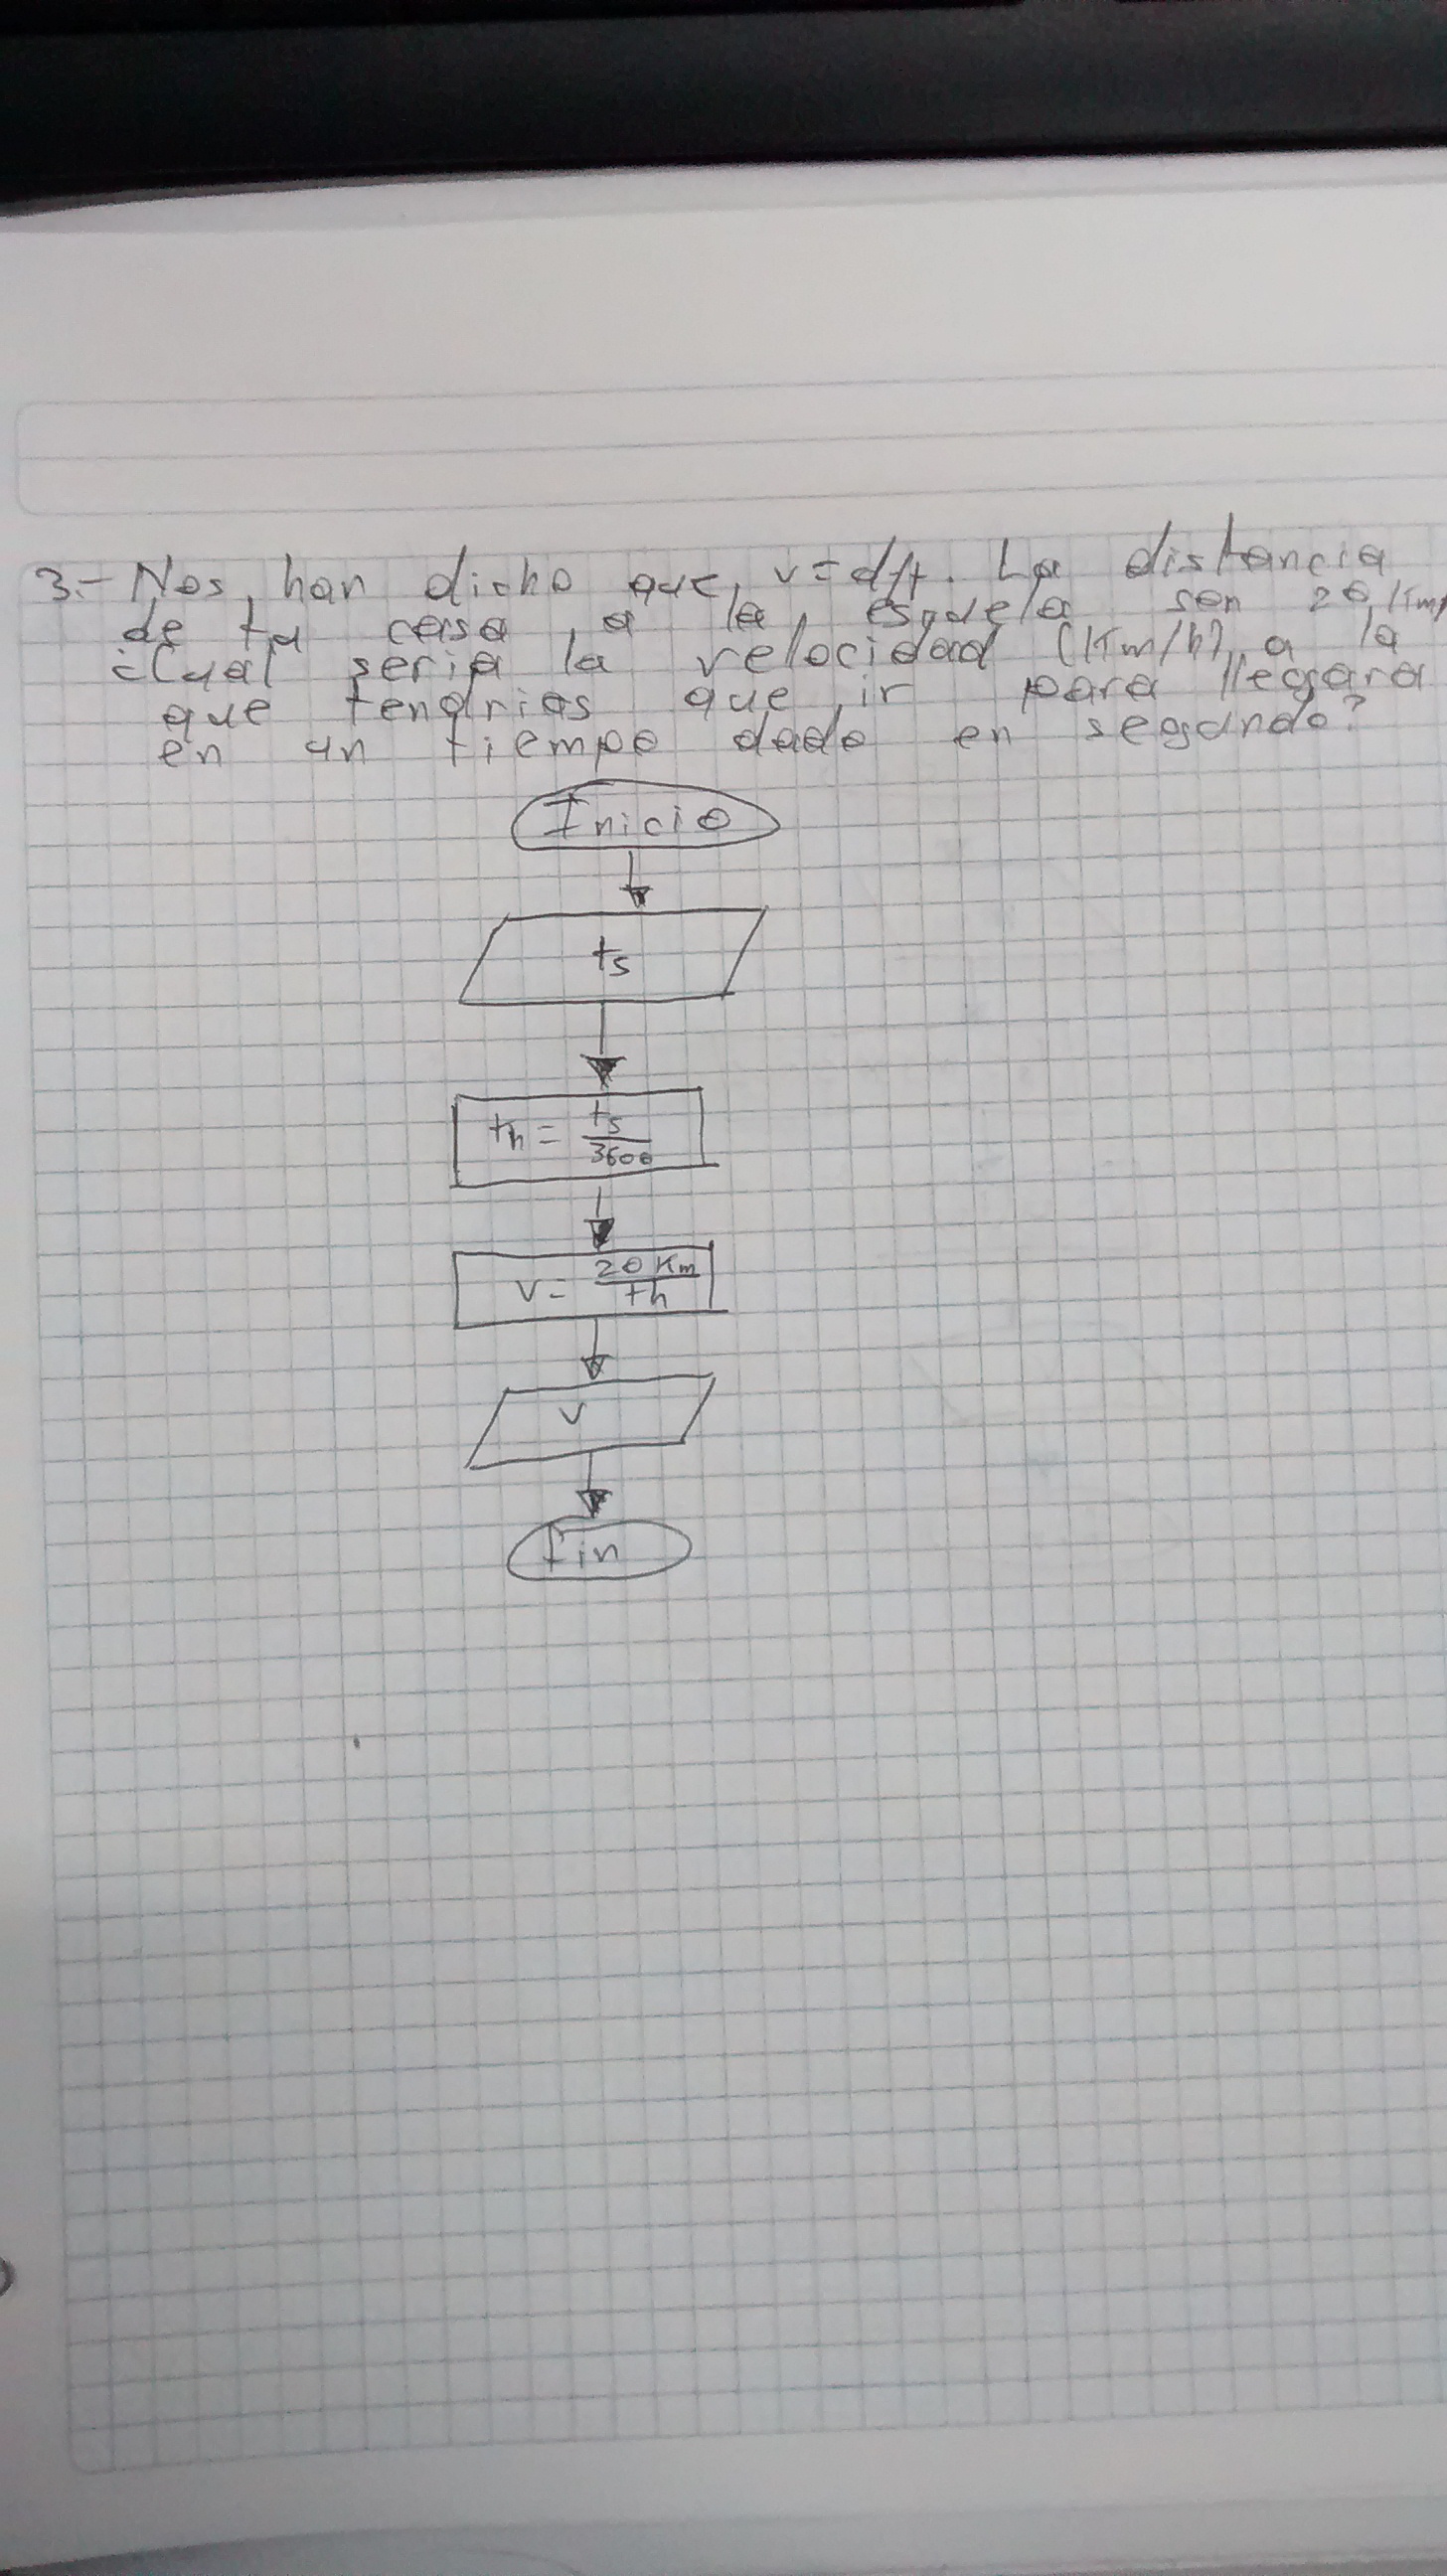 3.- Nos han dicho que, v=d/t. La distancia
de tu casa, a la, esquela son 20, Km,
¿Cual seria la velocidad (Km/h), a la
que tendrias que ir para llegara
en un tiempo dado en segundo?
Inicio
ts
th = ts/3600
v = 20 Km/th
v
fin